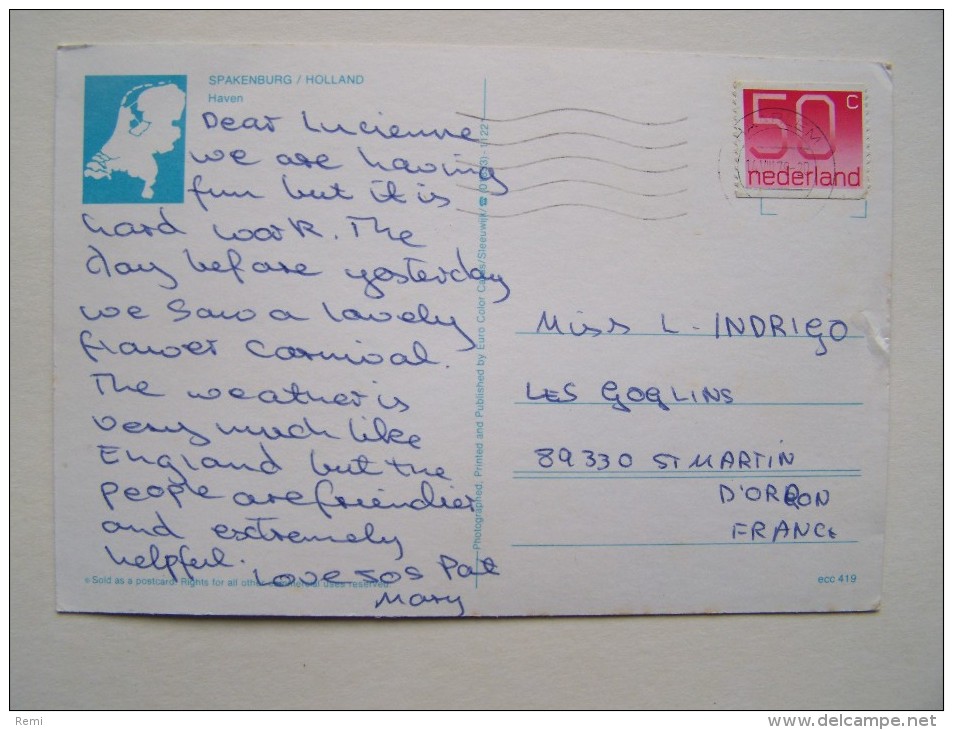 SPAKENBURG / HOLLAND
Haven
Dear Lucienne
we are having
fun but it is
hard work. The
day before yesterday
we saw a lovely
flower carnival.
The weather is
very much like
England but the
people are friendlier
and extremely
helpful.
Love Jos Pat
Mary
© Sold as a postcard. Rights for all other commercial uses reserved.
Photographed, Printed and Published by Euro Color Cards/Sleeuwijk/
50 c
nederland
Miss L. INDRIGO
LES GOGLINS
89330 ST MARTIN
D'ORDON
FRANCE
ecc 419
Remi
www.delcampe.net